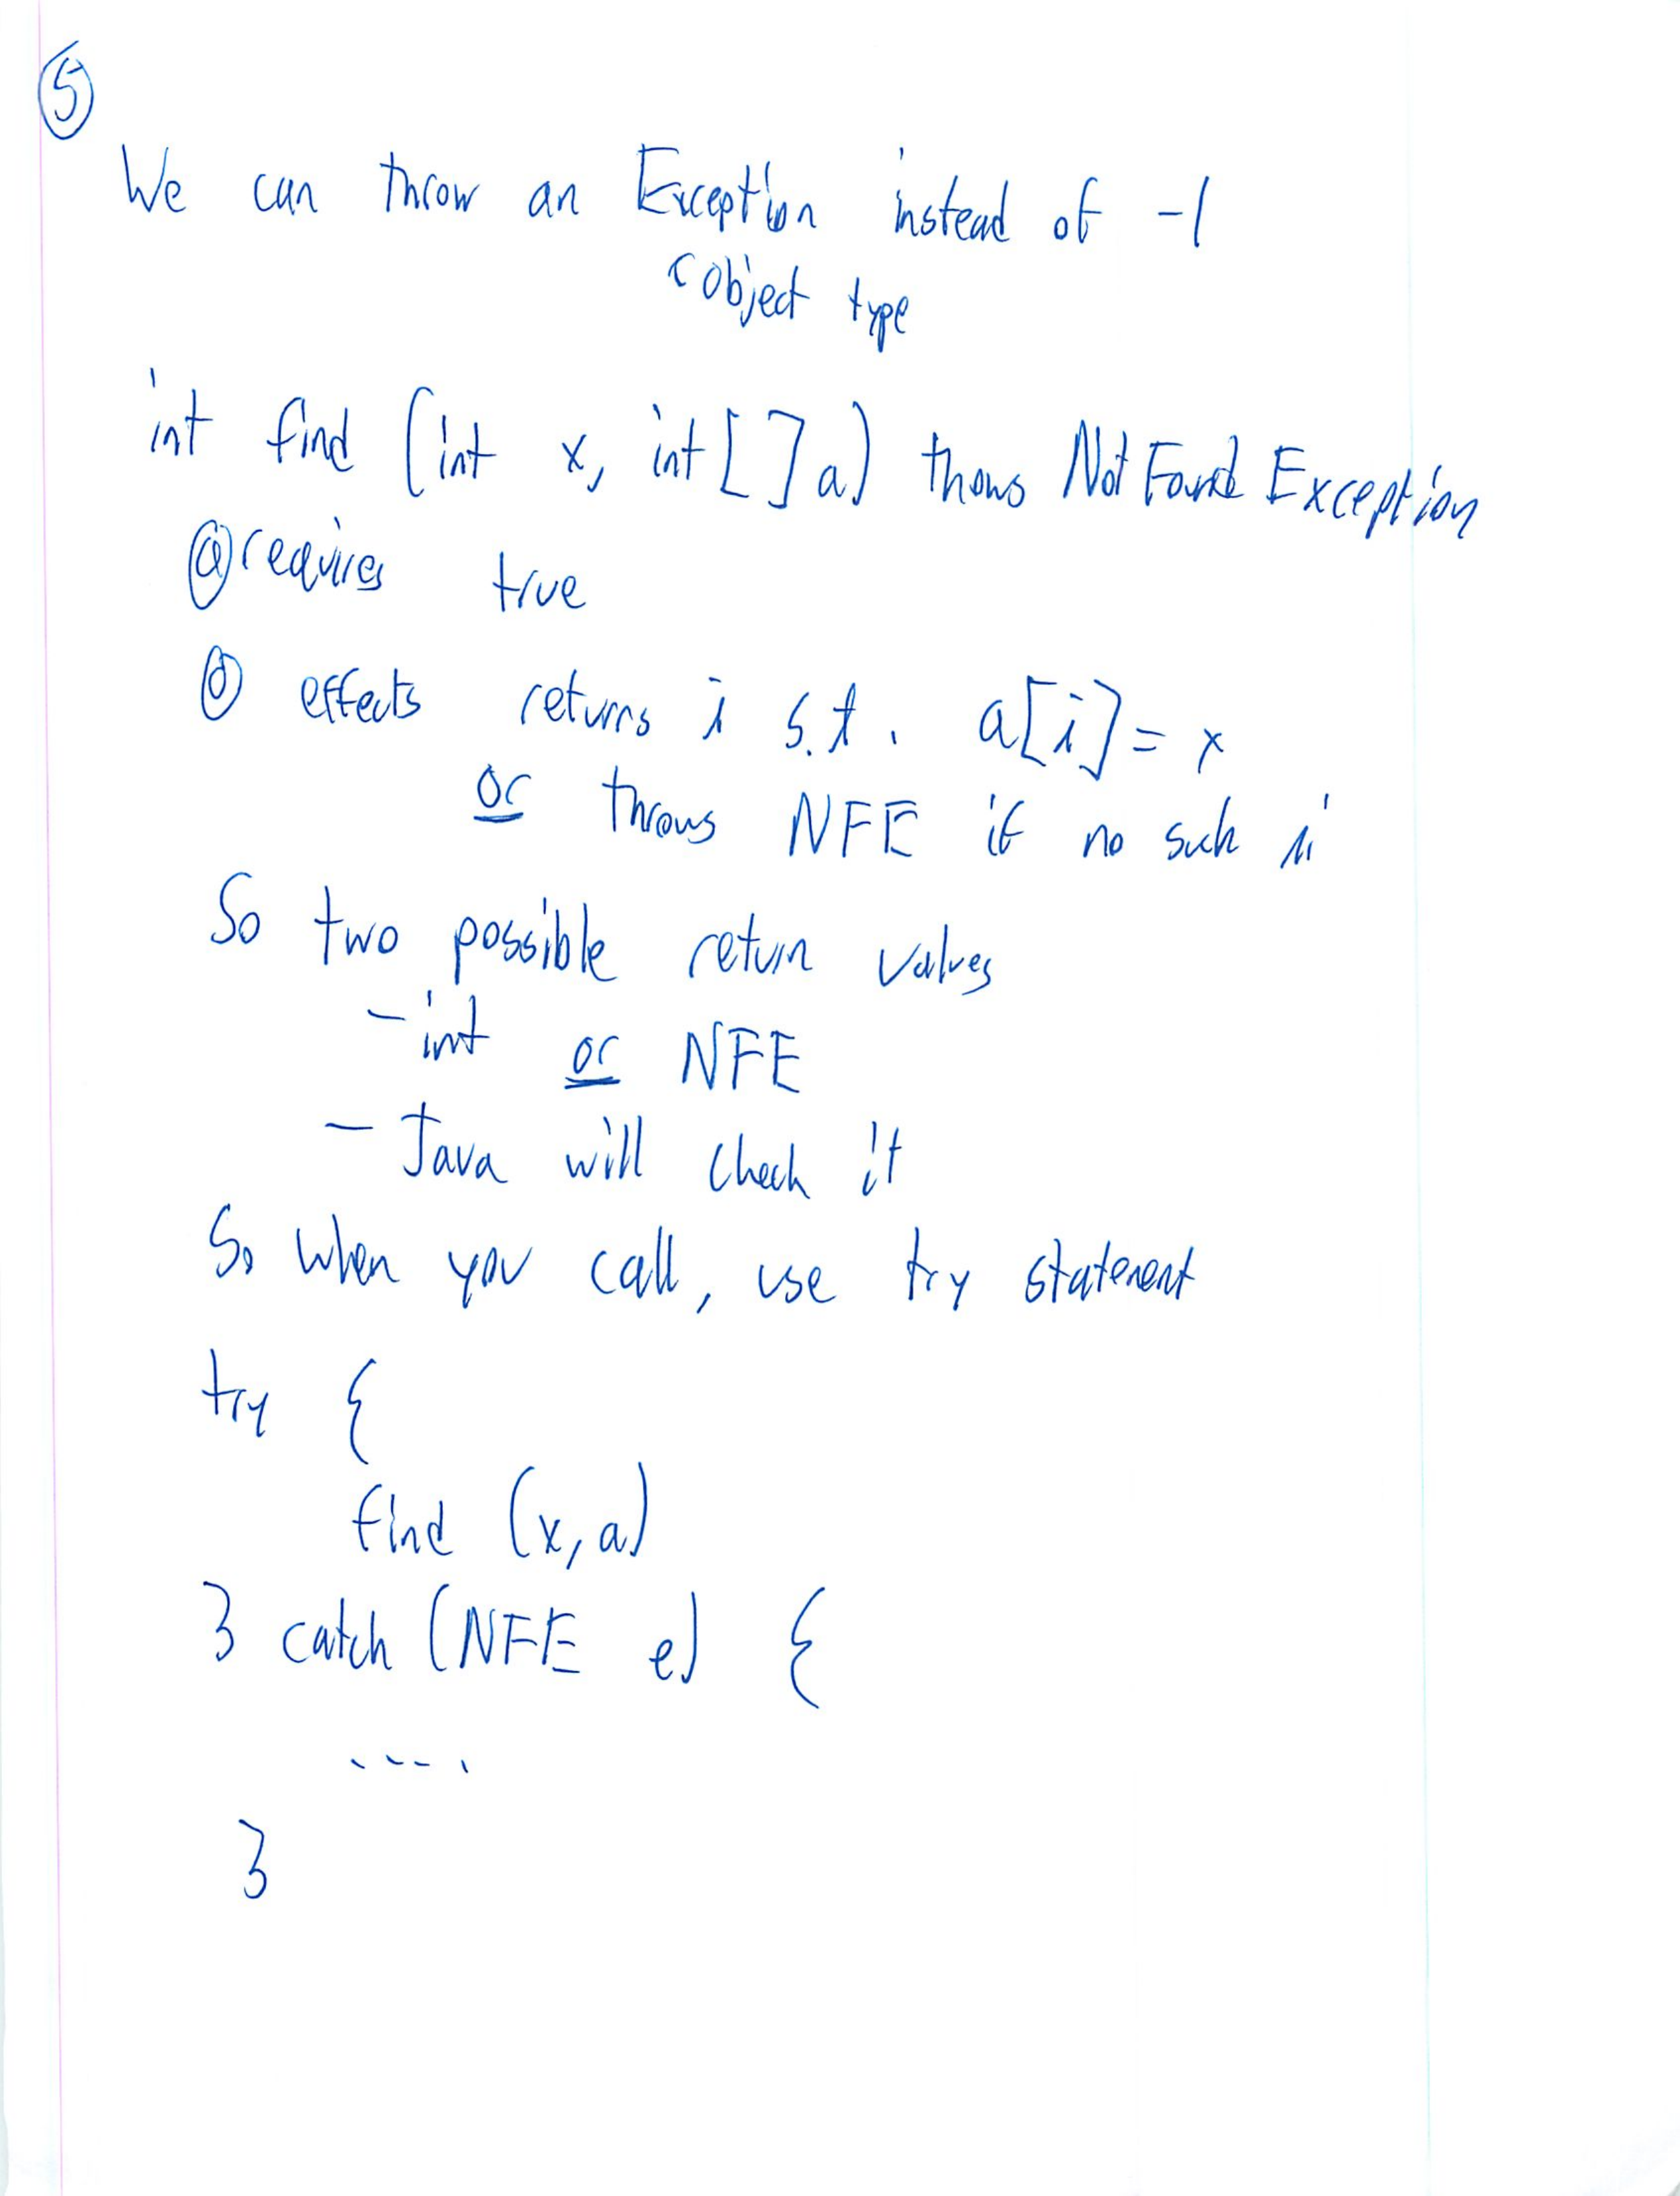 5
We can throw an Exception instead of -1
object type
int find (int x, int [] a) throws Not Found Exception
@requires true
@ effects returns i s.t. a[i] = x
or throws NFE if no such i
So two possible return values
- int or NFE
- Java will check it
So when you call, use try statement
try {
find (x, a)
} catch (NFE e) {
....
}